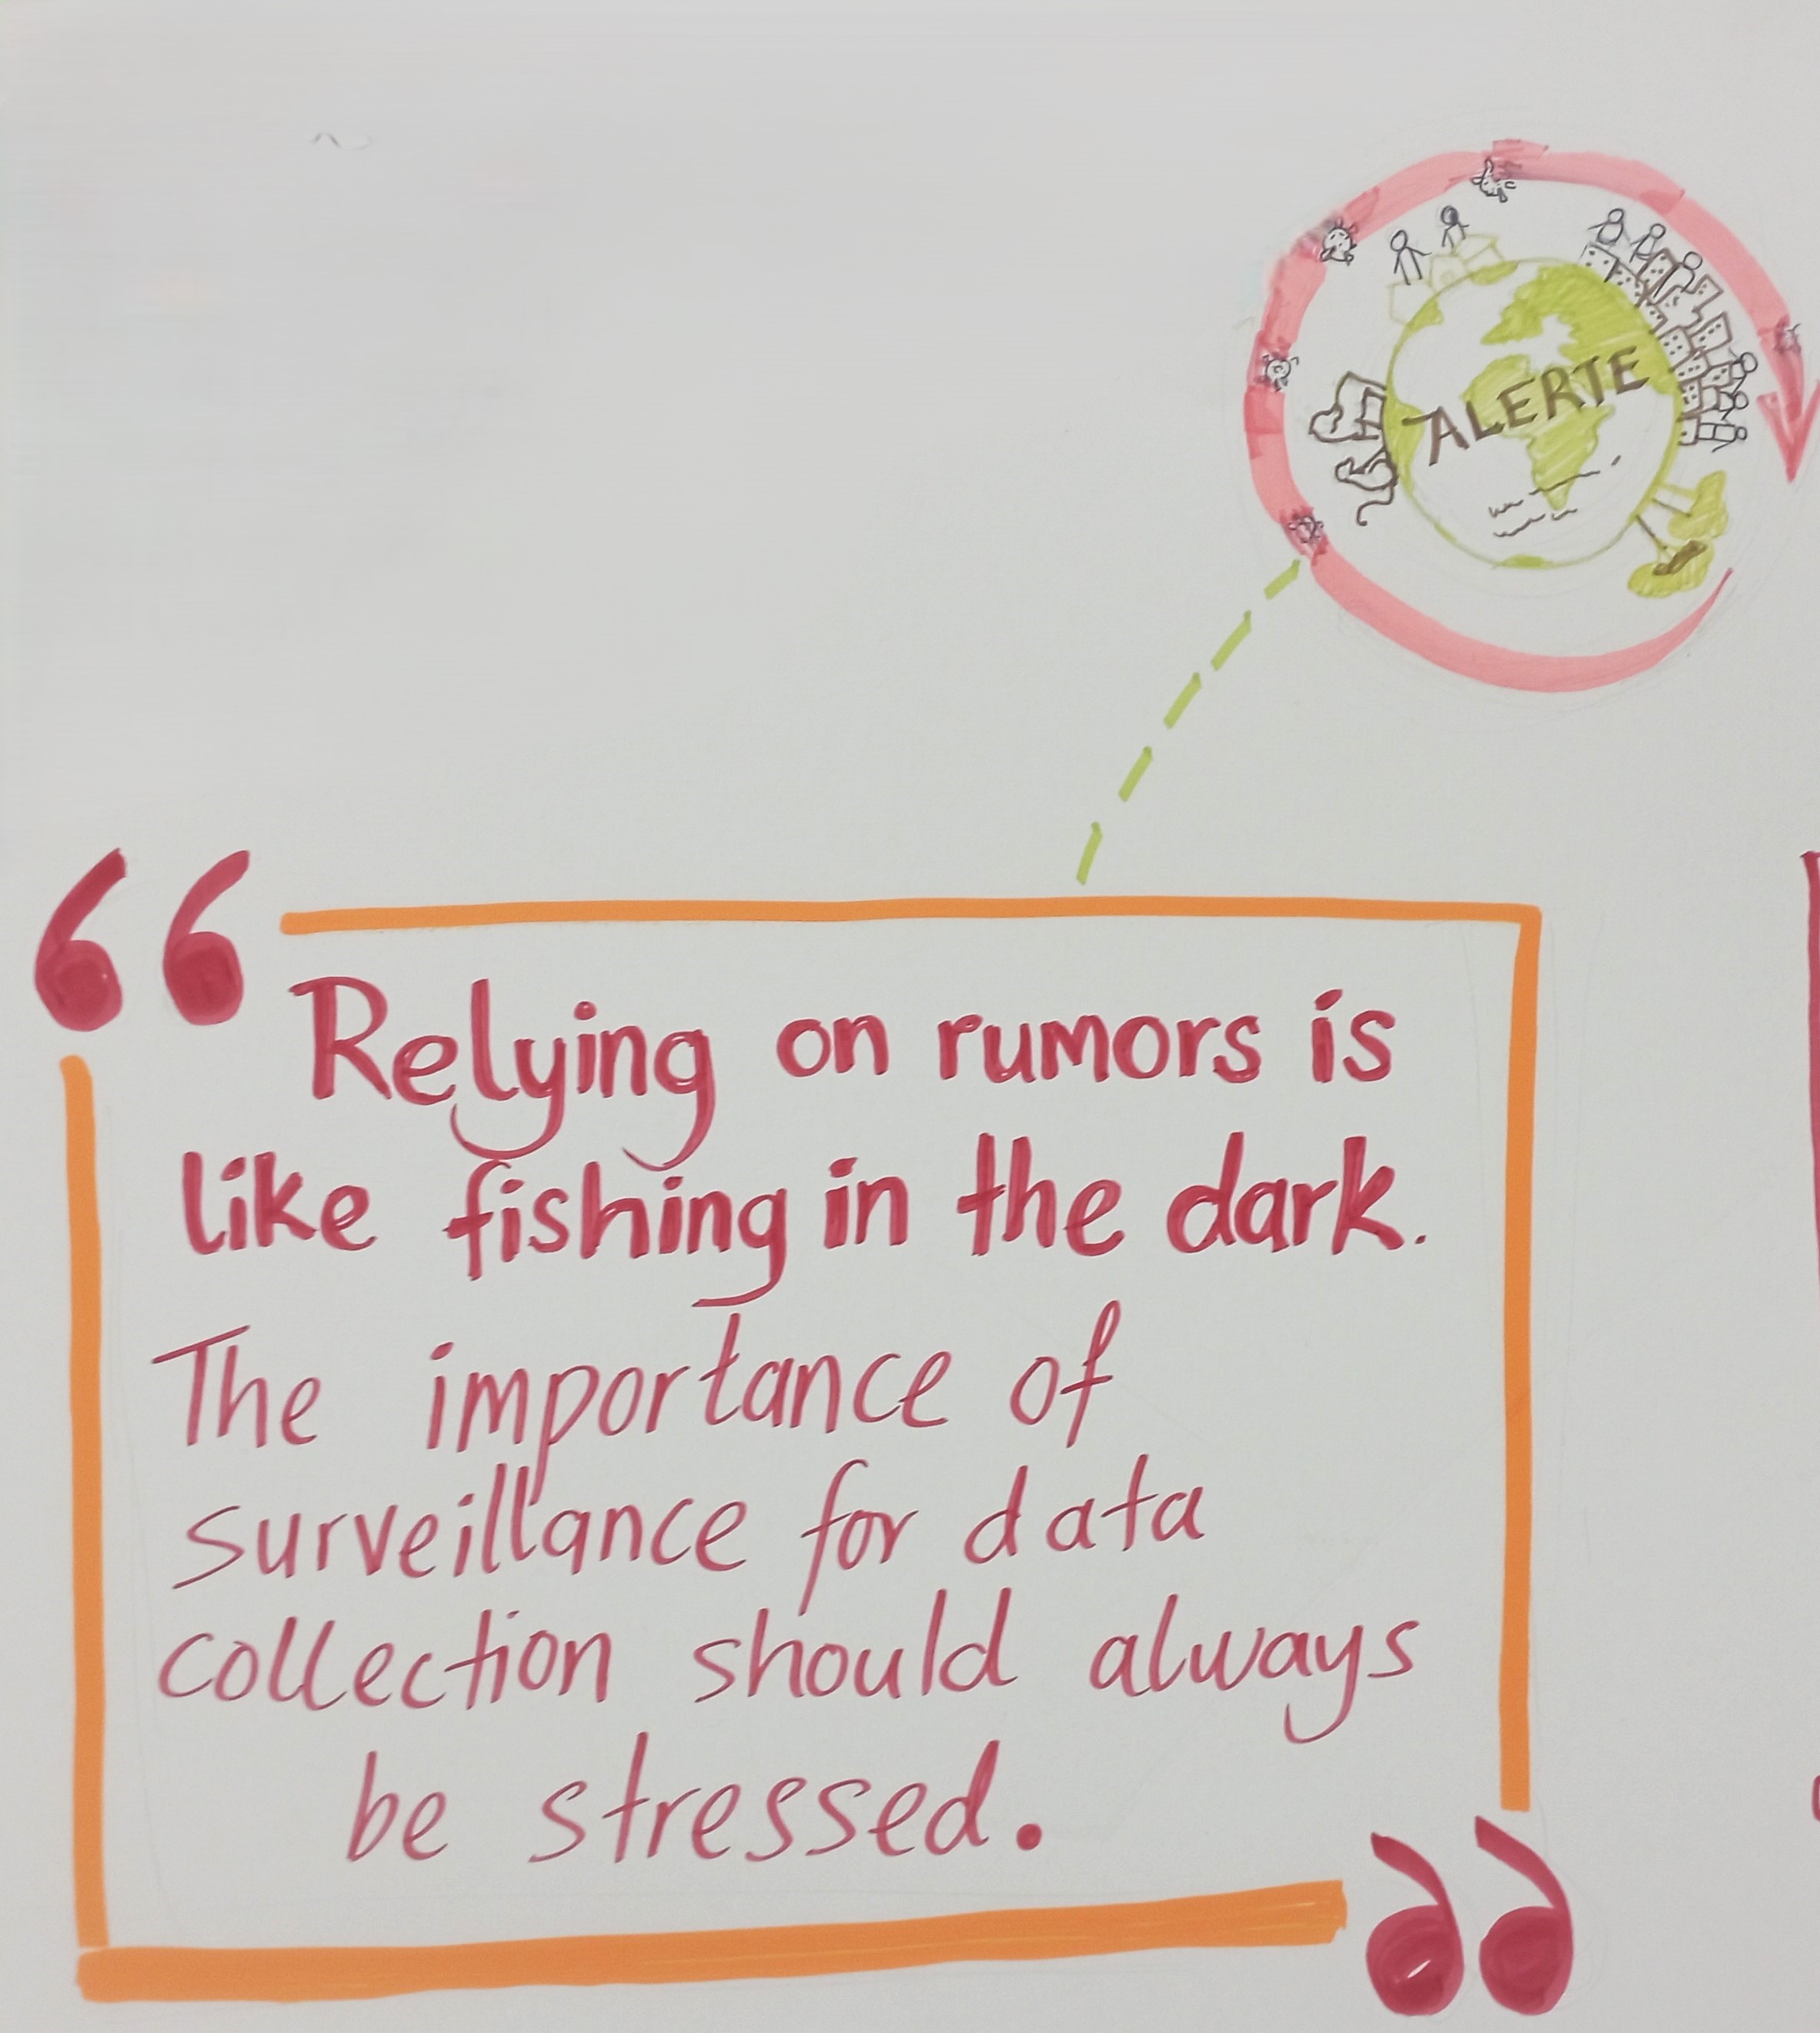 ALERTE
Relying on rumors is
like fishing in the dark.
The importance of
surveillance for data
collection should always
be stressed.